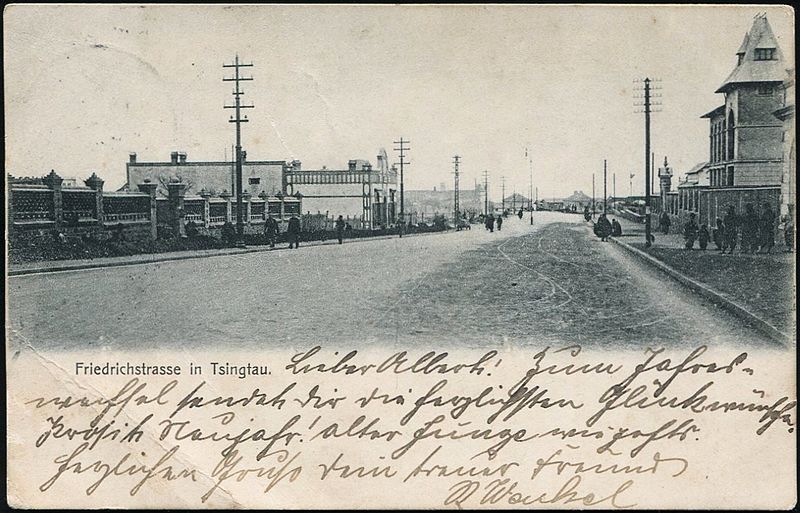 Friedrichstrasse in Tsingtau. Lieber Albert! Zum Jahres-
wechsel sendet Dir die herzlichsten Glückwünsche.
Prosit Neujahr! alter Junge wie gehts.
Herzlichen Gruß Dein treuer Freund